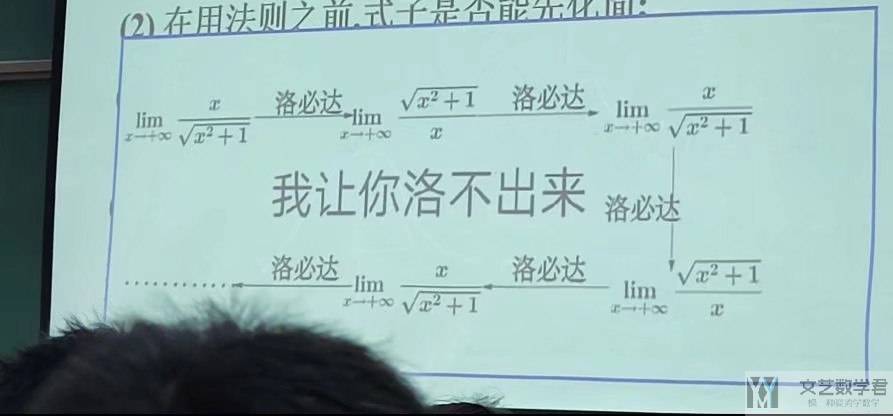 (2) 在用法则之前,式子是否能先化简:
lim x→+∞ x/√(x²+1) 洛必达 lim x→+∞ √(x²+1)/x 洛必达 lim x→+∞ x/√(x²+1)
我让你洛不出来 洛必达
………… 洛必达 lim x→+∞ x/√(x²+1) 洛必达 lim x→+∞ √(x²+1)/x
文艺数学君